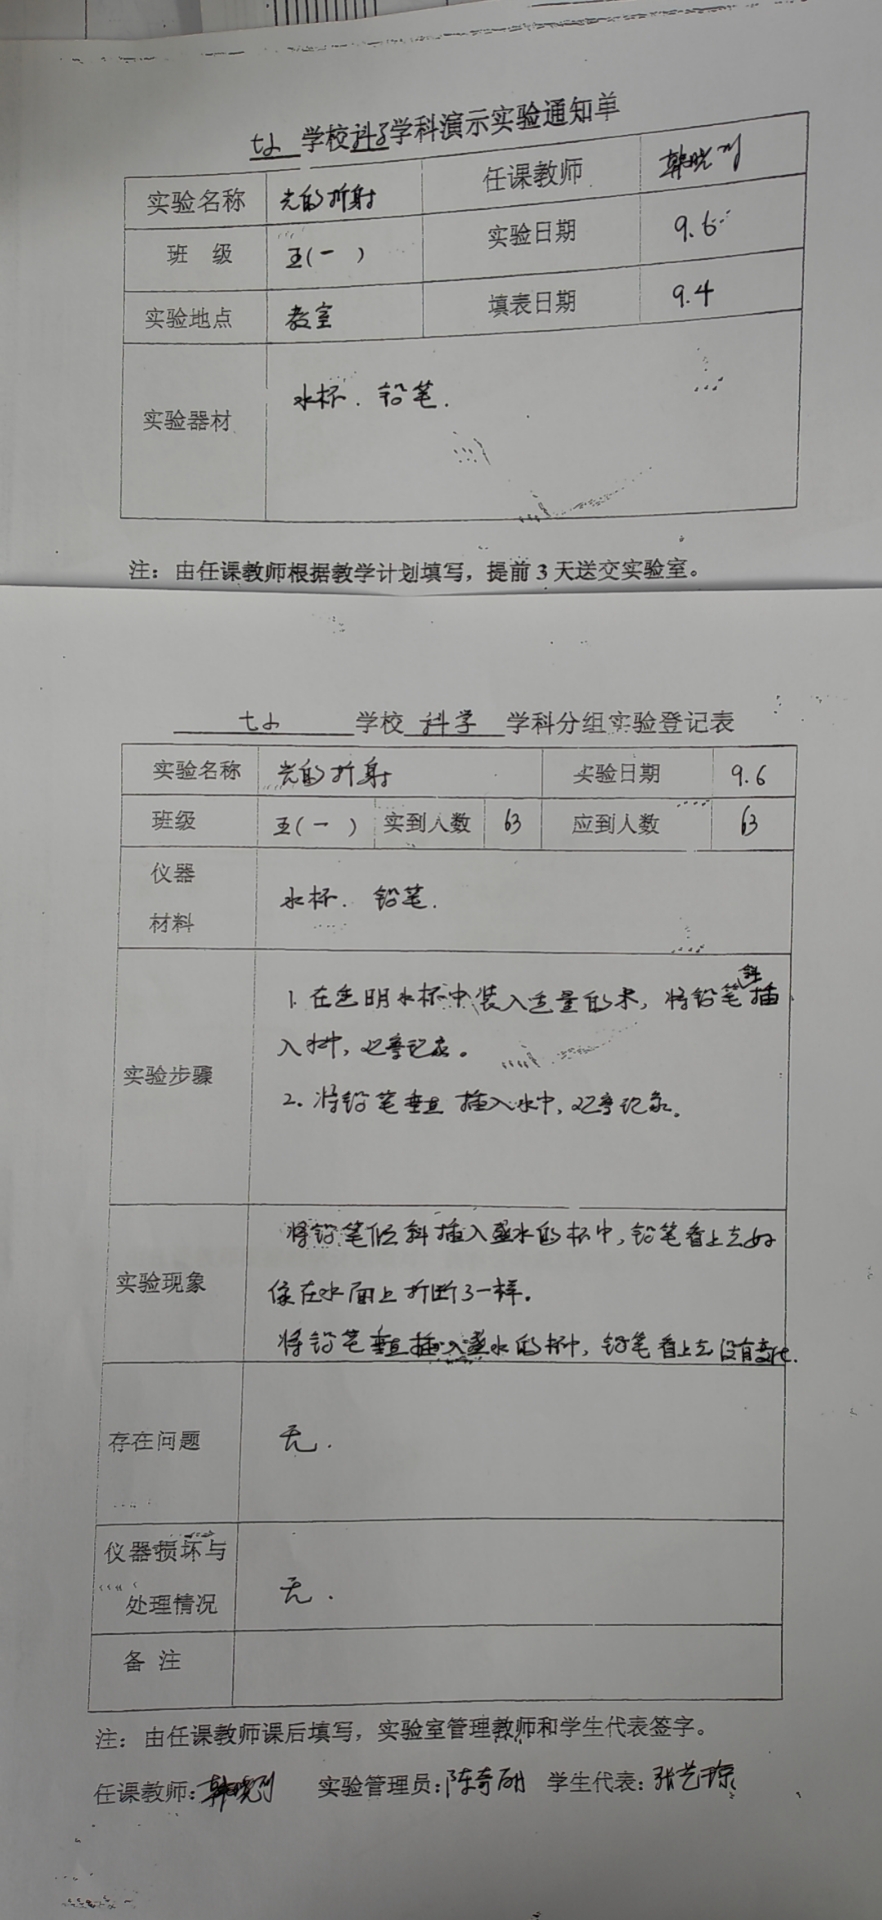 七小 学校科学学科演示实验通知单
实验名称 光的折射 任课教师 韩晓
班 级 五(一) 实验日期 9.6
实验地点 教室 填表日期 9.4
实验器材 水杯. 铅笔.
注：由任课教师根据教学计划填写，提前3天送交实验室。
七小 学校 科学 学科分组实验登记表
实验名称 光的折射 实验日期 9.6
班级 五(一) 实到人数 63 应到人数 63
仪器
材料
水杯. 铅笔.
实验步骤
1. 在透明水杯中装入适量的水，将铅笔斜插
入水中，观察记录。
2. 将铅笔垂直插入水中，观察记录。
实验现象
将铅笔倾斜插入盛水的杯中，铅笔看上去好
像在水面上折断了一样。
将铅笔垂直插入盛水的杯中，铅笔看上去没有变化.
存在问题 无.
仪器损坏与
处理情况
无.
备 注
注：由任课教师课后填写，实验室管理教师和学生代表签字。
任课教师：韩晓 实验管理员：陈奇 学生代表：张艺琼